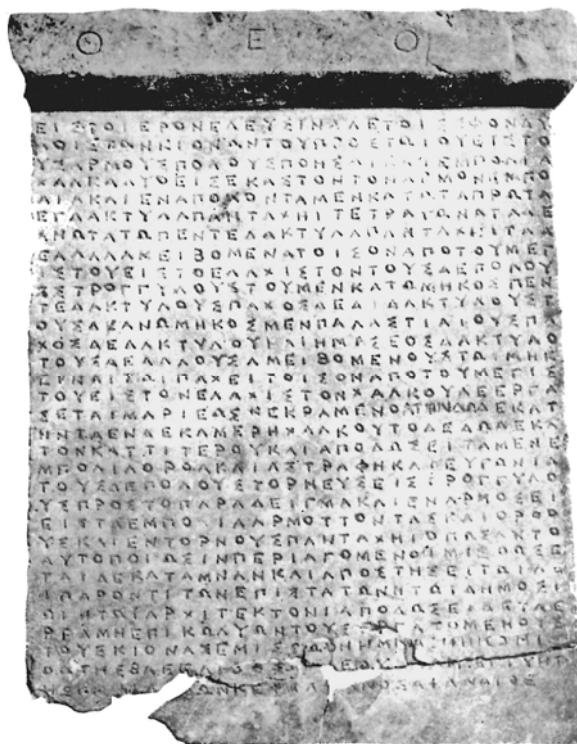 Θ Ε Ο
ΕΙΣΤΟΙΕΡΟΝΕΛΕΥΣΙΝΑΔΕΤΟΙΣΣΦΟΝΔΥ
ΛΟΙΣΤΩΝΚΙΟΝΩΝΤΟΥΠΡΟΣΤΩΙΟΥΕΙΣΤΟ
ΥΣΑΡΜΟΥΣΠΟΛΟΥΣΠΟΗΣΑΙΚΑΙΕΜΠΟΛΙΑ
ΧΑΛΚΑΔΥΟΕΙΣΕΚΑΣΤΟΝΤΟΝΑΡΜΟΝΕΝΠΟ
ΛΙΑΚΑΙΕΝΑΠΟΛΟΝΤΑΜΕΝΚΑΤΩΤΑΠΡΩΤΑ
ΕΓΔΑΚΤΥΛΑΠΑΝΤΑΧΗΙΤΕΤΡΑΓΩΝΑΤΑΔΕ
ΑΝΩΤΑΤΩΠΕΝΤΕΔΑΚΤΥΛΑΠΑΝΤΑΧΗΙΤΑΔ
ΕΑΛΛΑΑΜΕΙΒΟΜΕΝΑΤΟΙΣΟΝΑΠΟΤΟΥΜΕΓ
ΙΣΤΟΥΕΙΣΤΟΕΛΑΧΙΣΤΟΝΤΟΥΣΔΕΠΟΛΟΥ
ΣΣΤΡΟΓΓΥΛΟΥΣΤΟΥΜΕΝΚΑΤΩΜΗΚΟΣΠΕΝ
ΤΕΔΑΚΤΥΛΟΥΣΠΑΧΟΣΔΕΔΙΔΑΚΤΥΛΟΥΣΤ
ΟΥΣΔΕΑΝΩΜΗΚΟΣΜΕΝΠΑΛΑΣΤΙΑΙΟΥΣΠΑ
ΧΟΣΔΕΔΑΚΤΥΛΟΥΚΑΙΗΜΙΣΕΟΣΔΑΚΤΥΛΟ
ΤΟΥΣΔΕΑΛΛΟΥΣΑΜΕΙΒΟΜΕΝΟΥΣΤΩΙΜΗΚ
ΕΙΚΑΙΤΩΙΠΑΧΕΙΤΟΙΣΟΝΑΠΟΤΟΥΜΕΓΙΣ
ΤΟΥΕΙΣΤΟΝΕΛΑΧΙΣΤΟΝΧΑΛΚΟΥΔΕΕΡΓΑ
ΣΕΤΑΙΜΑΡΙΕΩΣΚΕΚΡΑΜΕΝΟΥΤΗΝΔΩΔΕΚΑΤ
ΗΝΤΑΕΝΔΕΚΑΜΕΡΗΧΑΛΚΟΥΤΟΔΕΔΩΔΕΚΑ
ΤΟΝΚΑΤΤΙΤΕΡΟΥΚΑΙΑΠΟΔΩΣΕΙΤΑΜΕΝΕ
ΜΠΟΛΙΑΟΡΘΑΚΑΙΑΣΤΡΑΦΗΚΑΙΕΥΓΩΝΙΑ
ΤΟΥΣΔΕΠΟΛΟΥΣΤΟΡΝΕΥΣΕΙΣΤΡΟΓΓΥΛΟ
ΥΣΠΡΟΣΤΟΠΑΡΑΔΕΙΓΜΑΚΑΙΕΝΑΡΜΟΣΕΙ
ΕΙΣΤΑΕΜΠΟΛΙΑΑΡΜΟΤΤΟΝΤΑΣΑΡΑΙΟΡΟ
ΥΣΚΑΙΕΝΤΟΡΝΟΥΣΠΑΝΤΑΧΗΙΟΠΩΣΑΝΤΟ
ΑΥΤΟΠΟΙΩΣΙΝΠΕΡΙΑΓΟΜΕΝΟΙΜΙΣΘΩΣΕ
ΤΑΙΔΕΚΑΤΑΜΝΑΝΚΑΙΑΠΟΣΤΗΣΕΙΤΩΙΑΕ
ΙΠΑΡΟΝΤΙΤΩΝΕΠΙΣΤΑΤΩΝΗΤΩΙΔΗΜΟΣΙ
ΩΙΗΤΩΙΑΡΧΙΤΕΚΤΟΝΙΑΠΟΔΩΣΕΙΔΕΤΑΕ
ΡΓΑΜΗΕΠΙΚΩΛΥΩΝΤΟΥΣΕΡΓΑΖΟΜΕΝΟΥΣ
ΤΟΥΣΚΙΟΝΑΣΕΜΙΣΘΩΘΗΗΜΝΑ
ΘΩΤΗΣΒΛΕΠ ΕΓΓΥΗΤ
ΩΝΚΕΦΑΛΙΩΝΟΣΑΦΙΔΝΑΙΟΣ